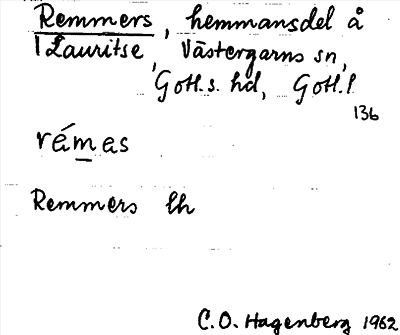 Remmers, hemmansdel å
1 Lauritse, Västergarns sn,
Gotl. s. hd, Gotl. l.
136
rémas
Remmers lh
C. O. Hagenberg 1962